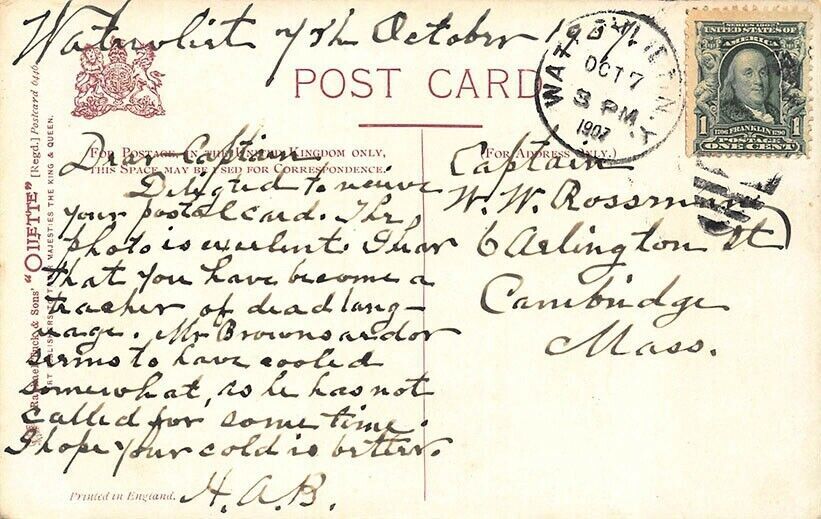 Watervliet 7th October 1907.
POST CARD
WATERVLIET, N.Y.
OCT 7
3 PM
1907
SERIES 1902
UNITED STATES OF
AMERICA
1706 FRANKLIN 1790
1 POSTAGE 1
ONE CENT
FOR POSTAGE IN THE UNITED KINGDOM ONLY,
THIS SPACE MAY BE USED FOR CORRESPONDENCE.
(FOR ADDRESS ONLY.)
Dear Captain
Deligted to receive
your postal card. The
photo is excelent. I hear
that you have become a
teacher of dead lang-
uage. Mr Browns ardor
seems to have cooled
somewhat, as he has not
called for some time.
I hope your cold is better.
H.A.B.
Captain
W. W. Rossman
6 Arlington St
Cambridge
Mass.
Raphael Tuck & Sons' "OILETTE" [Regd.] Postcard 6440
ART PUBLISHERS TO THEIR MAJESTIES THE KING & QUEEN.
Printed in England.